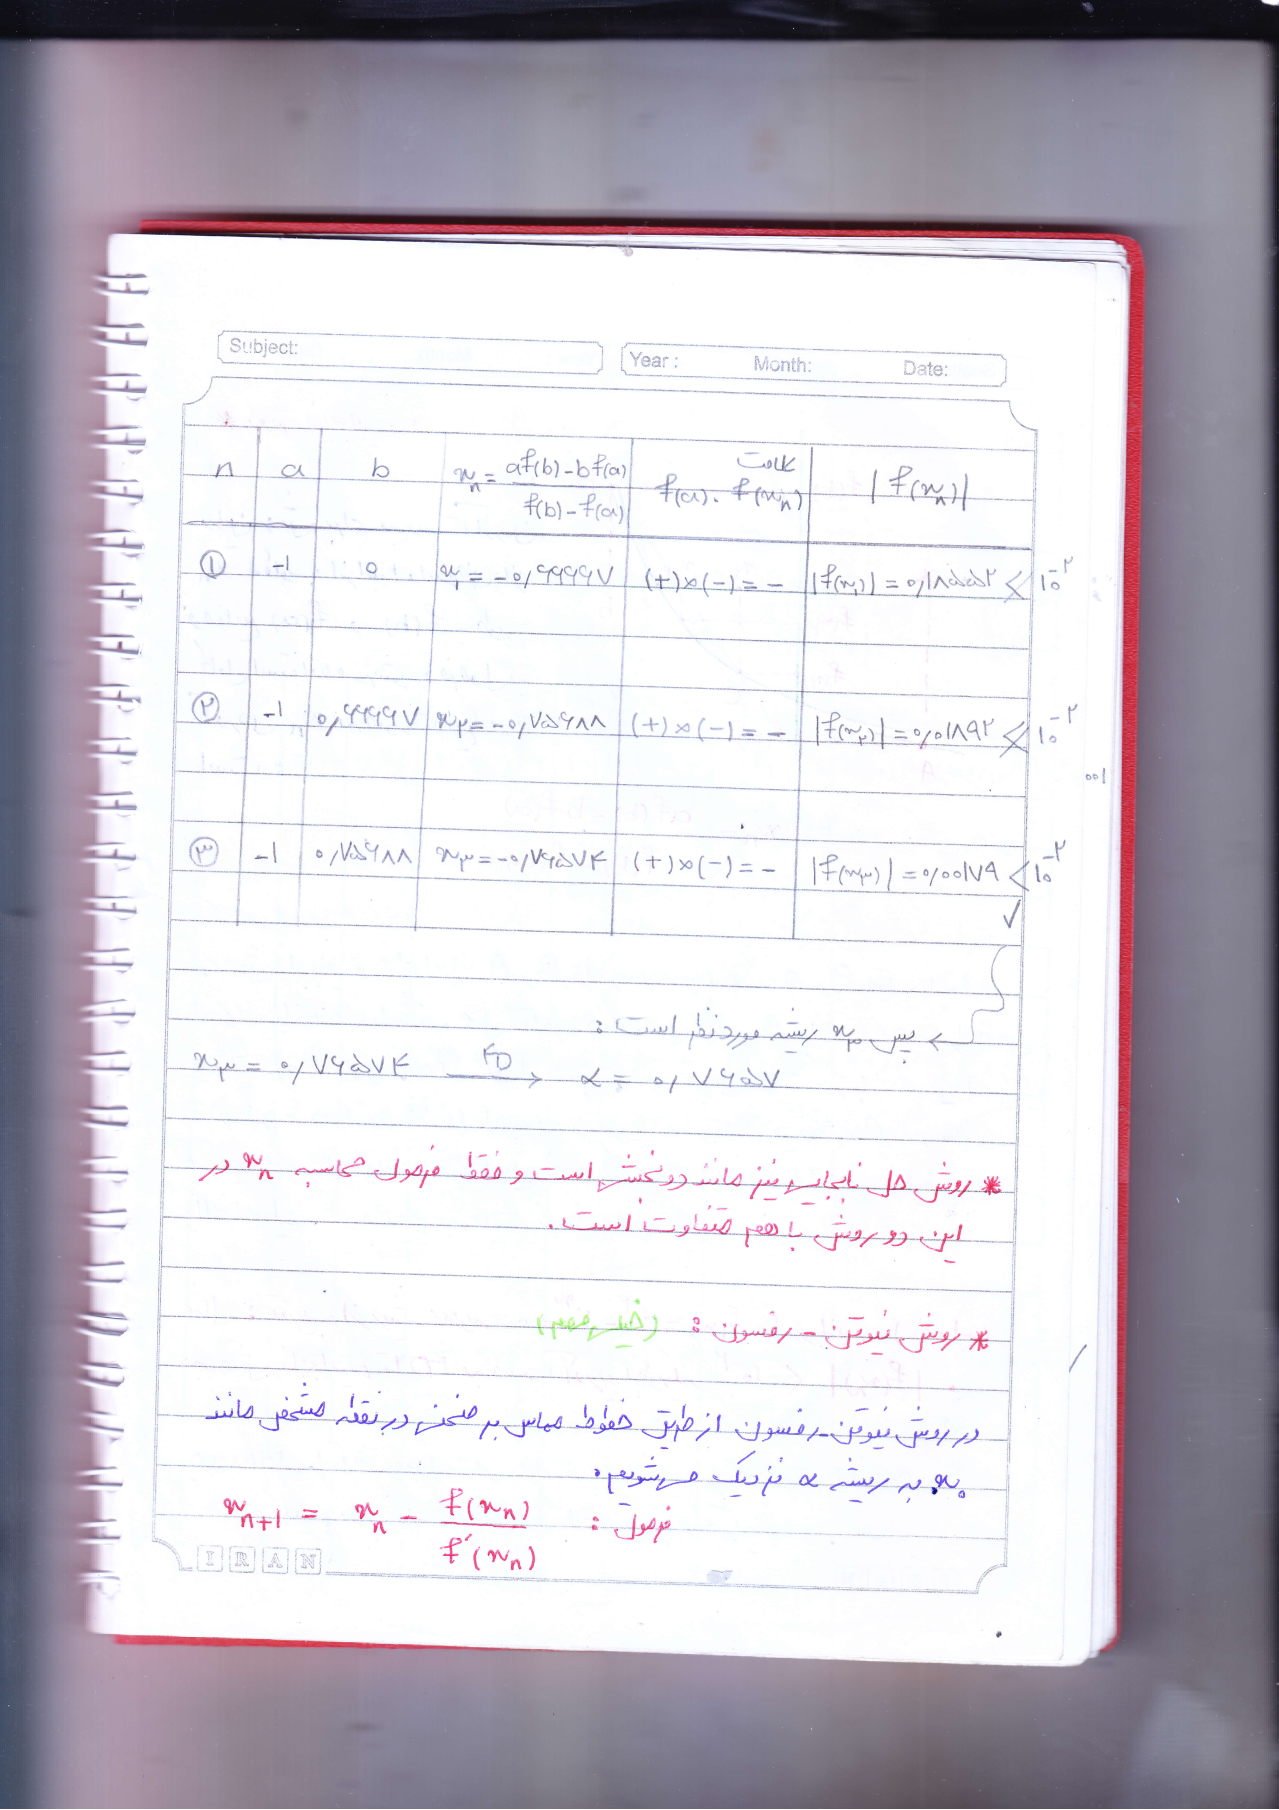 Subject:
Year : Month: Date:
n a b xₙ = af(b) - bf(a) / f(b) - f(a) علامت f(a) . f(xₙ) |f(xₙ)|
① -۱ ۰ x₁ = -۰٫۶۶۶۶۷ (+)×(-) = - |f(x₁)| = ۰٫۱۸۵۵۲ ≮ ۱۰⁻²
② -۱ ۰٫۶۶۶۶۷ x₂ = -۰٫۷۵۶۸۸ (+)×(-) = - |f(x₂)| = ۰٫۰۱۸۹۲ ≮ ۱۰⁻²
۰۰۱
③ -۱ ۰٫۷۵۶۸۸ x₃ = -۰٫۷۶۵۷۴ (+)×(-) = - |f(x₃)| = ۰٫۰۰۱۷۹ < ۱۰⁻² ✓
پس x₃ ریشه موردنظر است :
x₃ = ۰٫۷۶۵۷۴ —4D→ α = ۰٫۷۶۵۷
* روش حل نابجایی نیز مانند دوبخشی است و فقط فرمول محاسبه xₙ در
این دو روش با هم متفاوت است.
* روش نیوتن - رفسون : (خیلی مهم)
در روش نیوتن-رفسون از طریق خطوط مماس بر منحنی در نقطه مشخص مانند
x₀ به ریشه α نزدیک می‌شویم.
فرمول : xₙ₊₁ = xₙ - f(xₙ) / f′(xₙ)
IRAN